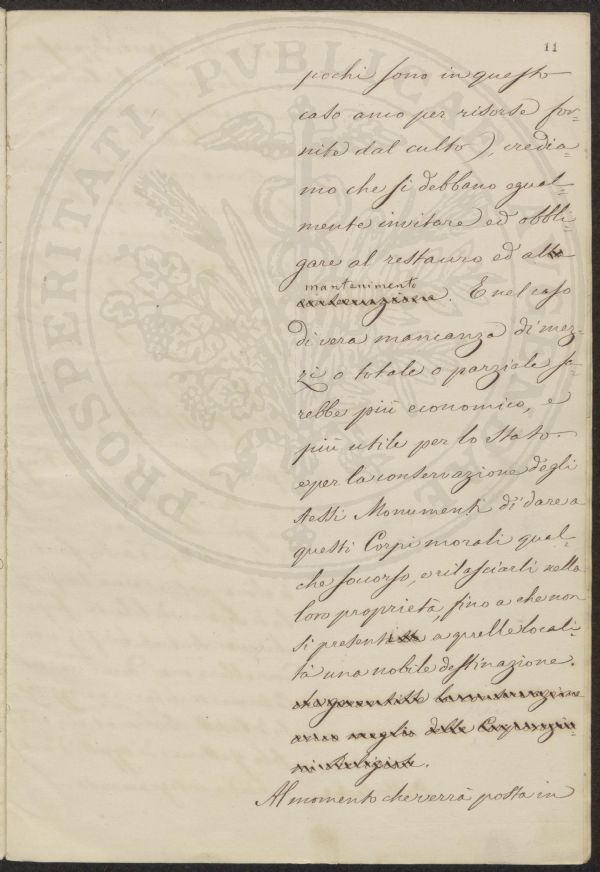 11
pochi sono in questo
caso anco per risorse for=
nite dal culto), credia=
mo che si debbano egual=
mente invitare ed obbli=
gare al restauro ed alla
mantenimento
conservazione. E nel caso
di vera mancanza di mez=
zi o totale o parziale sa=
rebbe più economico, e
più utile per lo Stato
e per la conservazione degli
stessi Monumenti di dare a
questi Corpi morali qual=
che soccorso, e rilasciarli nella
loro proprietà, fino a che non
si presenti a quelle locali=
tà una nobile destinazione.
conservazione
anco meglio delle Corporazio=
ni Religiose.
Al momento che verrà posta in
PROSPERITATI PUBLICAE